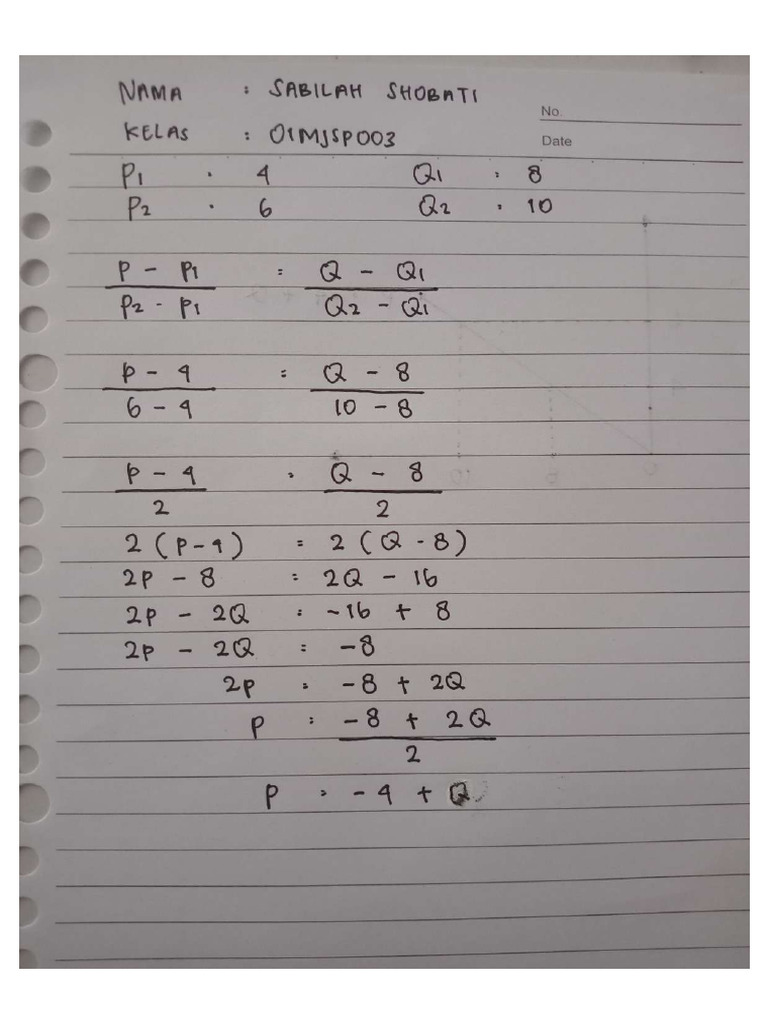 NAMA : SABILAH SHOBATI
No.
KELAS : 01MJSP003
Date
P1 : 4 Q1 : 8
P2 : 6 Q2 : 10
P - P1 = Q - Q1
P2 - P1 Q2 - Q1
P - 4 = Q - 8
6 - 4 10 - 8
P - 4 = Q - 8
2 2
2 (P-4) = 2 (Q - 8)
2P - 8 = 2Q - 16
2P - 2Q = -16 + 8
2P - 2Q = -8
2P = -8 + 2Q
P = -8 + 2Q
2
P = -4 + Q